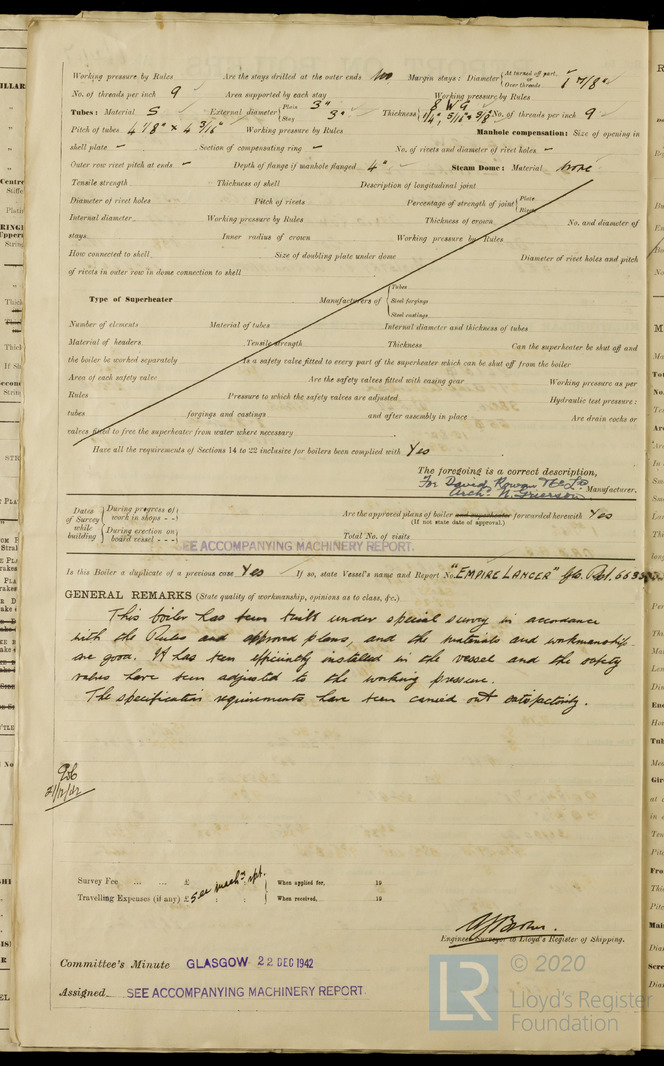 Working pressure by Rules Are the stays drilled at the outer ends No Margin stays: Diameter { At turned off part, or Over threads 1 7/8"
No. of threads per inch 9 Area supported by each stay Working pressure by Rules
Tubes: Material S External diameter { Plain 3" Stay 3" Thickness { 8 WG 1/4", 5/16" & 3/8" No. of threads per inch 9
Pitch of tubes 4 1/8" x 4 3/16" Working pressure by Rules Manhole compensation: Size of opening in
shell plate - Section of compensating ring - No. of rivets and diameter of rivet holes -
Outer row rivet pitch at ends - Depth of flange if manhole flanged 4" Steam Dome: Material None
Tensile strength Thickness of shell Description of longitudinal joint
Diameter of rivet holes Pitch of rivets Percentage of strength of joint { Plate Rivets
Internal diameter Working pressure by Rules Thickness of crown No. and diameter of
stays Inner radius of crown Working pressure by Rules
How connected to shell Size of doubling plate under dome Diameter of rivet holes and pitch
of rivets in outer row in dome connection to shell
Type of Superheater Manufacturers of { Tubes Steel forgings Steel castings
Number of elements Material of tubes Internal diameter and thickness of tubes
Material of headers Tensile strength Thickness Can the superheater be shut off and
the boiler be worked separately Is a safety valve fitted to every part of the superheater which can be shut off from the boiler
Area of each safety valve Are the safety valves fitted with easing gear Working pressure as per
Rules Pressure to which the safety valves are adjusted Hydraulic test pressure:
tubes forgings and castings and after assembly in place Are drain cocks or
valves fitted to free the superheater from water where necessary
Have all the requirements of Sections 14 to 22 inclusive for boilers been complied with Yes
The foregoing is a correct description,
For David Rowan & Co Ld
Archd. W. Grierson Manufacturer.
Dates of Survey while building { During progress of work in shops - - } { During erection on board vessel - - - }
Are the approved plans of boiler and superheater forwarded herewith Yes
(If not state date of approval.)
SEE ACCOMPANYING MACHINERY REPORT. Total No. of visits
Is this Boiler a duplicate of a previous case Yes If so, state Vessel's name and Report No. "EMPIRE LANCER" Gls. Rpt.
GENERAL REMARKS (State quality of workmanship, opinions as to class, &c.)
This boiler has been built under special survey in accordance
with the Rules and approved plans, and the materials and workmanship
are good. It has been efficiently installed in the vessel and the safety
valves have been adjusted to the working pressure.
The specification requirements have been carried out satisfactorily.
21/12/42
Survey Fee ... ... £ See mach. rpt. When applied for, 19
Travelling Expenses (if any) £ When received, 19
Engineer Surveyor to Lloyd's Register of Shipping.
Committee's Minute GLASGOW 22 DEC 1942
Assigned SEE ACCOMPANYING MACHINERY REPORT.
LR © 2020
Lloyd's Register
Foundation